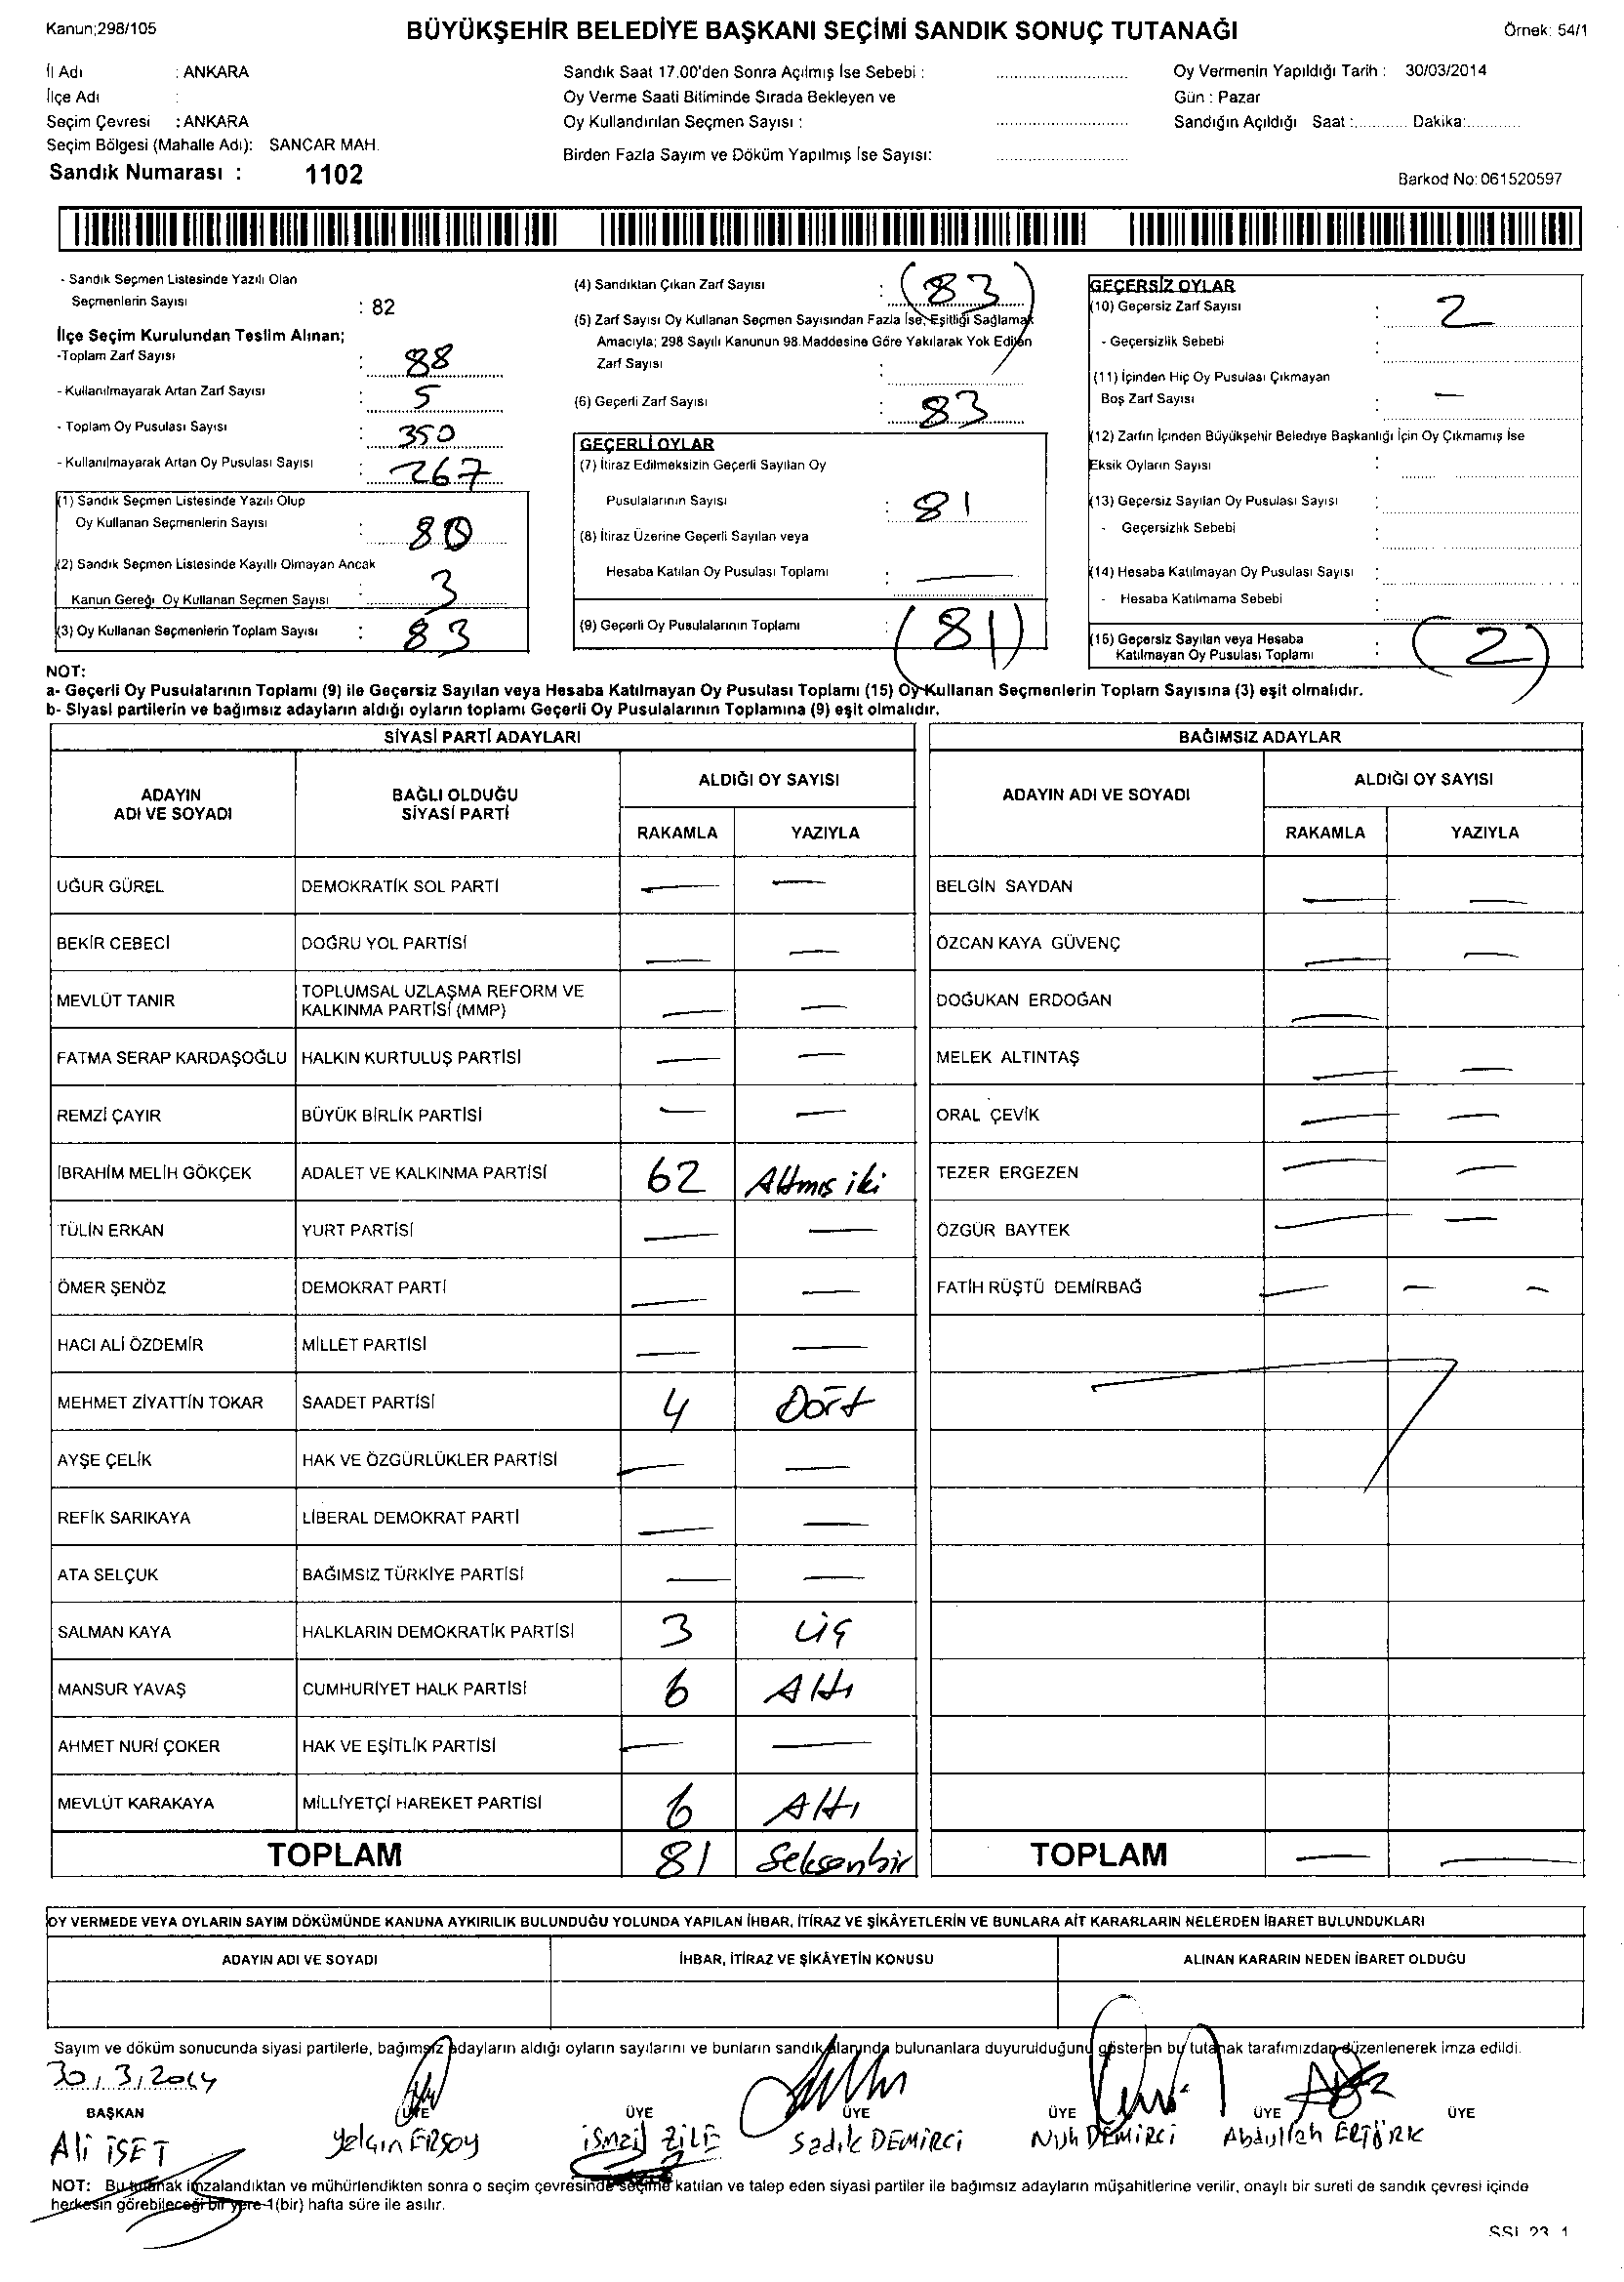 Kanun;298/105
BÜYÜKŞEHİR BELEDİYE BAŞKANI SEÇİMİ SANDIK SONUÇ TUTANAĞI
Örnek: 54/1
İl Adı : ANKARA
İlçe Adı :
Seçim Çevresi : ANKARA
Seçim Bölgesi (Mahalle Adı): SANCAR MAH.
Sandık Numarası : 1102
Sandık Saat 17.00'den Sonra Açılmış İse Sebebi :
Oy Verme Saati Bitiminde Sırada Bekleyen ve
Oy Kullandırılan Seçmen Sayısı :
Birden Fazla Sayım ve Döküm Yapılmış İse Sayısı:
Oy Vermenin Yapıldığı Tarih : 30/03/2014
Gün : Pazar
Sandığın Açıldığı Saat :........... Dakika:...........
Barkod No: 061520597
- Sandık Seçmen Listesinde Yazılı Olan
Seçmenlerin Sayısı : 82
İlçe Seçim Kurulundan Teslim Alınan;
-Toplam Zarf Sayısı : 88
- Kullanılmayarak Artan Zarf Sayısı : 5
- Toplam Oy Pusulası Sayısı : 350
- Kullanılmayarak Artan Oy Pusulası Sayısı : 267
(1) Sandık Seçmen Listesinde Yazılı Olup
Oy Kullanan Seçmenlerin Sayısı : 80
(2) Sandık Seçmen Listesinde Kayıllı Olmayan Ancak
Kanun Gereği Oy Kullanan Seçmen Sayısı : 3
(3) Oy Kullanan Seçmenlerin Toplam Sayısı : 83
(4) Sandıktan Çıkan Zarf Sayısı : (83)
(5) Zarf Sayısı Oy Kullanan Seçmen Sayısından Fazla İse, Eşitliği Sağlamak
Amacıyla; 298 Sayılı Kanunun 98.Maddesine Göre Yakılarak Yok Edilen
Zarf Sayısı :
(6) Geçerli Zarf Sayısı : 83
GEÇERLİ OYLAR
(7) İtiraz Edilmeksizin Geçerli Sayılan Oy
Pusulalarının Sayısı : 81
(8) İtiraz Üzerine Geçerli Sayılan veya
Hesaba Katılan Oy Pusulası Toplamı : —
(9) Geçerli Oy Pusulalarının Toplamı : (81)
GEÇERSİZ OYLAR
(10) Geçersiz Zarf Sayısı : 2
- Geçersizlik Sebebi :
(11) İçinden Hiç Oy Pusulası Çıkmayan
Boş Zarf Sayısı : —
(12) Zarfın İçinden Büyükşehir Belediye Başkanlığı İçin Oy Çıkmamış İse
Eksik Oyların Sayısı :
(13) Geçersiz Sayılan Oy Pusulası Sayısı :
- Geçersizlik Sebebi :
(14) Hesaba Katılmayan Oy Pusulası Sayısı :
- Hesaba Katılmama Sebebi :
(15) Geçersiz Sayılan veya Hesaba
Katılmayan Oy Pusulası Toplamı : (2)
NOT:
a- Geçerli Oy Pusulalarının Toplamı (9) ile Geçersiz Sayılan veya Hesaba Katılmayan Oy Pusulası Toplamı (15) Oy Kullanan Seçmenlerin Toplam Sayısına (3) eşit olmalıdır.
b- Siyasi partilerin ve bağımsız adayların aldığı oyların toplamı Geçerli Oy Pusulalarının Toplamına (9) eşit olmalıdır.
SİYASİ PARTİ ADAYLARI
ADAYIN ADI VE SOYADI
BAĞLI OLDUĞU SİYASİ PARTİ
ALDIĞI OY SAYISI
RAKAMLA YAZIYLA
UĞUR GÜREL DEMOKRATİK SOL PARTİ — —
BEKİR CEBECİ DOĞRU YOL PARTİSİ — —
MEVLÜT TANIR TOPLUMSAL UZLAŞMA REFORM VE KALKINMA PARTİSİ (MMP) — —
FATMA SERAP KARDAŞOĞLU HALKIN KURTULUŞ PARTİSİ — —
REMZİ ÇAYIR BÜYÜK BİRLİK PARTİSİ — —
İBRAHİM MELİH GÖKÇEK ADALET VE KALKINMA PARTİSİ 62 Altmış iki
TÜLİN ERKAN YURT PARTİSİ — —
ÖMER ŞENÖZ DEMOKRAT PARTİ — —
HACI ALİ ÖZDEMİR MİLLET PARTİSİ — —
MEHMET ZİYATTİN TOKAR SAADET PARTİSİ 4 Dört
AYŞE ÇELİK HAK VE ÖZGÜRLÜKLER PARTİSİ — —
REFİK SARIKAYA LİBERAL DEMOKRAT PARTİ — —
ATA SELÇUK BAĞIMSIZ TÜRKİYE PARTİSİ — —
SALMAN KAYA HALKLARIN DEMOKRATİK PARTİSİ 3 üç
MANSUR YAVAŞ CUMHURİYET HALK PARTİSİ 6 Altı
AHMET NURİ ÇOKER HAK VE EŞİTLİK PARTİSİ — —
MEVLÜT KARAKAYA MİLLİYETÇİ HAREKET PARTİSİ 6 Altı
TOPLAM 81 Seksenbir
BAĞIMSIZ ADAYLAR
ADAYIN ADI VE SOYADI
ALDIĞI OY SAYISI
RAKAMLA YAZIYLA
BELGİN SAYDAN — —
ÖZCAN KAYA GÜVENÇ — —
DOĞUKAN ERDOĞAN —
MELEK ALTINTAŞ — —
ORAL ÇEVİK — —
TEZER ERGEZEN — —
ÖZGÜR BAYTEK — —
FATİH RÜŞTÜ DEMİRBAĞ — — —
TOPLAM — —
OY VERMEDE VEYA OYLARIN SAYIM DÖKÜMÜNDE KANUNA AYKIRILIK BULUNDUĞU YOLUNDA YAPILAN İHBAR, İTİRAZ VE ŞİKÂYETLERİN VE BUNLARA AİT KARARLARIN NELERDEN İBARET BULUNDUKLARI
ADAYIN ADI VE SOYADI İHBAR, İTİRAZ VE ŞİKÂYETİN KONUSU ALINAN KARARIN NEDEN İBARET OLDUĞU
Sayım ve döküm sonucunda siyasi partilerle, bağımsız adayların aldığı oyların sayılarını ve bunların sandık alanında bulunanlara duyurulduğunu gösteren bu tutanak tarafımızdan düzenlenerek imza edildi.
30.3.2014
BAŞKAN ÜYE ÜYE ÜYE ÜYE ÜYE ÜYE
Ali İSET Yalçın ERSOY İSMAİL ZİLE Sadık DEMİRCİ Nuh DEMİRCİ Abdullah ERTÜRK
NOT: Bu tutanak imzalandıktan ve mühürlendikten sonra o seçim çevresinde seçime katılan ve talep eden siyasi partiler ile bağımsız adayların müşahitlerine verilir, onaylı bir sureti de sandık çevresi içinde
herkesin görebileceği bir yere 1(bir) hafta süre ile asılır.